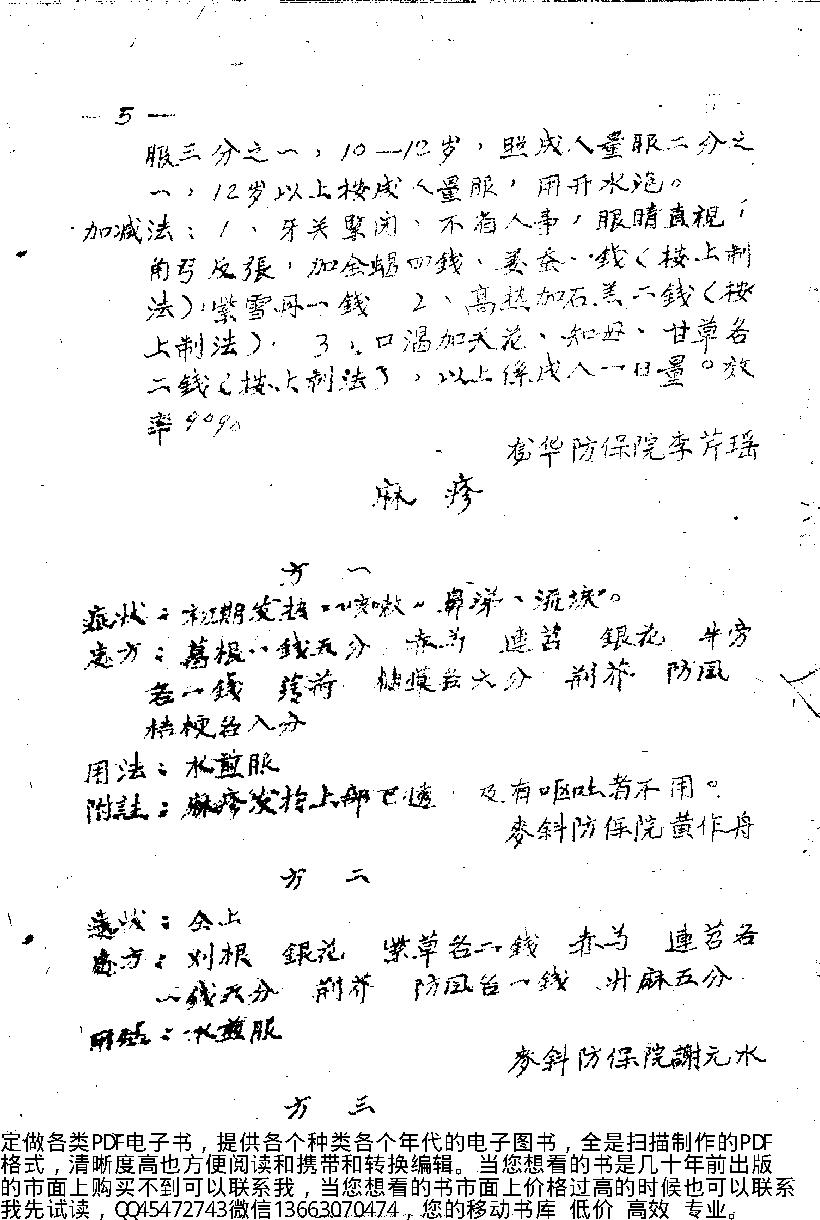 — 5 —
服三分之一，10—12岁，照成人量服二分之
一，12岁以上按成人量服，用开水泡。
加减法：1、牙关緊闭、不省人事，眼睛直視，
角弓反張，加全蝎四錢、姜蚕一錢（按上制
法），紫雪丹一錢 2、高热加石羔二錢（按
上制法）． 3、口渴加天花、知母、甘草各
二錢（按上制法），以上係成人一日量。效
率90%
华防保院李芹瑶
麻 疹
方 一
症狀：初期发热、咳嗽、鼻涕、流淚。
处方：葛根一錢五分 赤芍 連苕 銀花 牛旁
各一錢 薄荷 六分 荆芥 防風
桔梗各八分
用法：水煎服
附註：麻疹发於上部已透 及有呕吐者不用。
麥斜防保院黄作舟
方 二
症狀：仝上
处方：刈根 銀花 紫草各二錢 赤芍 連苕各
一錢五分 荆芥 防風各一錢 升麻五分
用法：水煎服
麥斜防保院謝元水
方 三
定做各类PDF电子书，提供各个种类各个年代的电子图书，全是扫描制作的PDF
格式，清晰度高也方便阅读和携带和转换编辑。当您想看的书是几十年前出版
的市面上购买不到可以联系我，当您想看的书市面上价格过高的时候也可以联系
我先试读，QQ45472743微信13663070474，您的移动书库 低价 高效 专业。